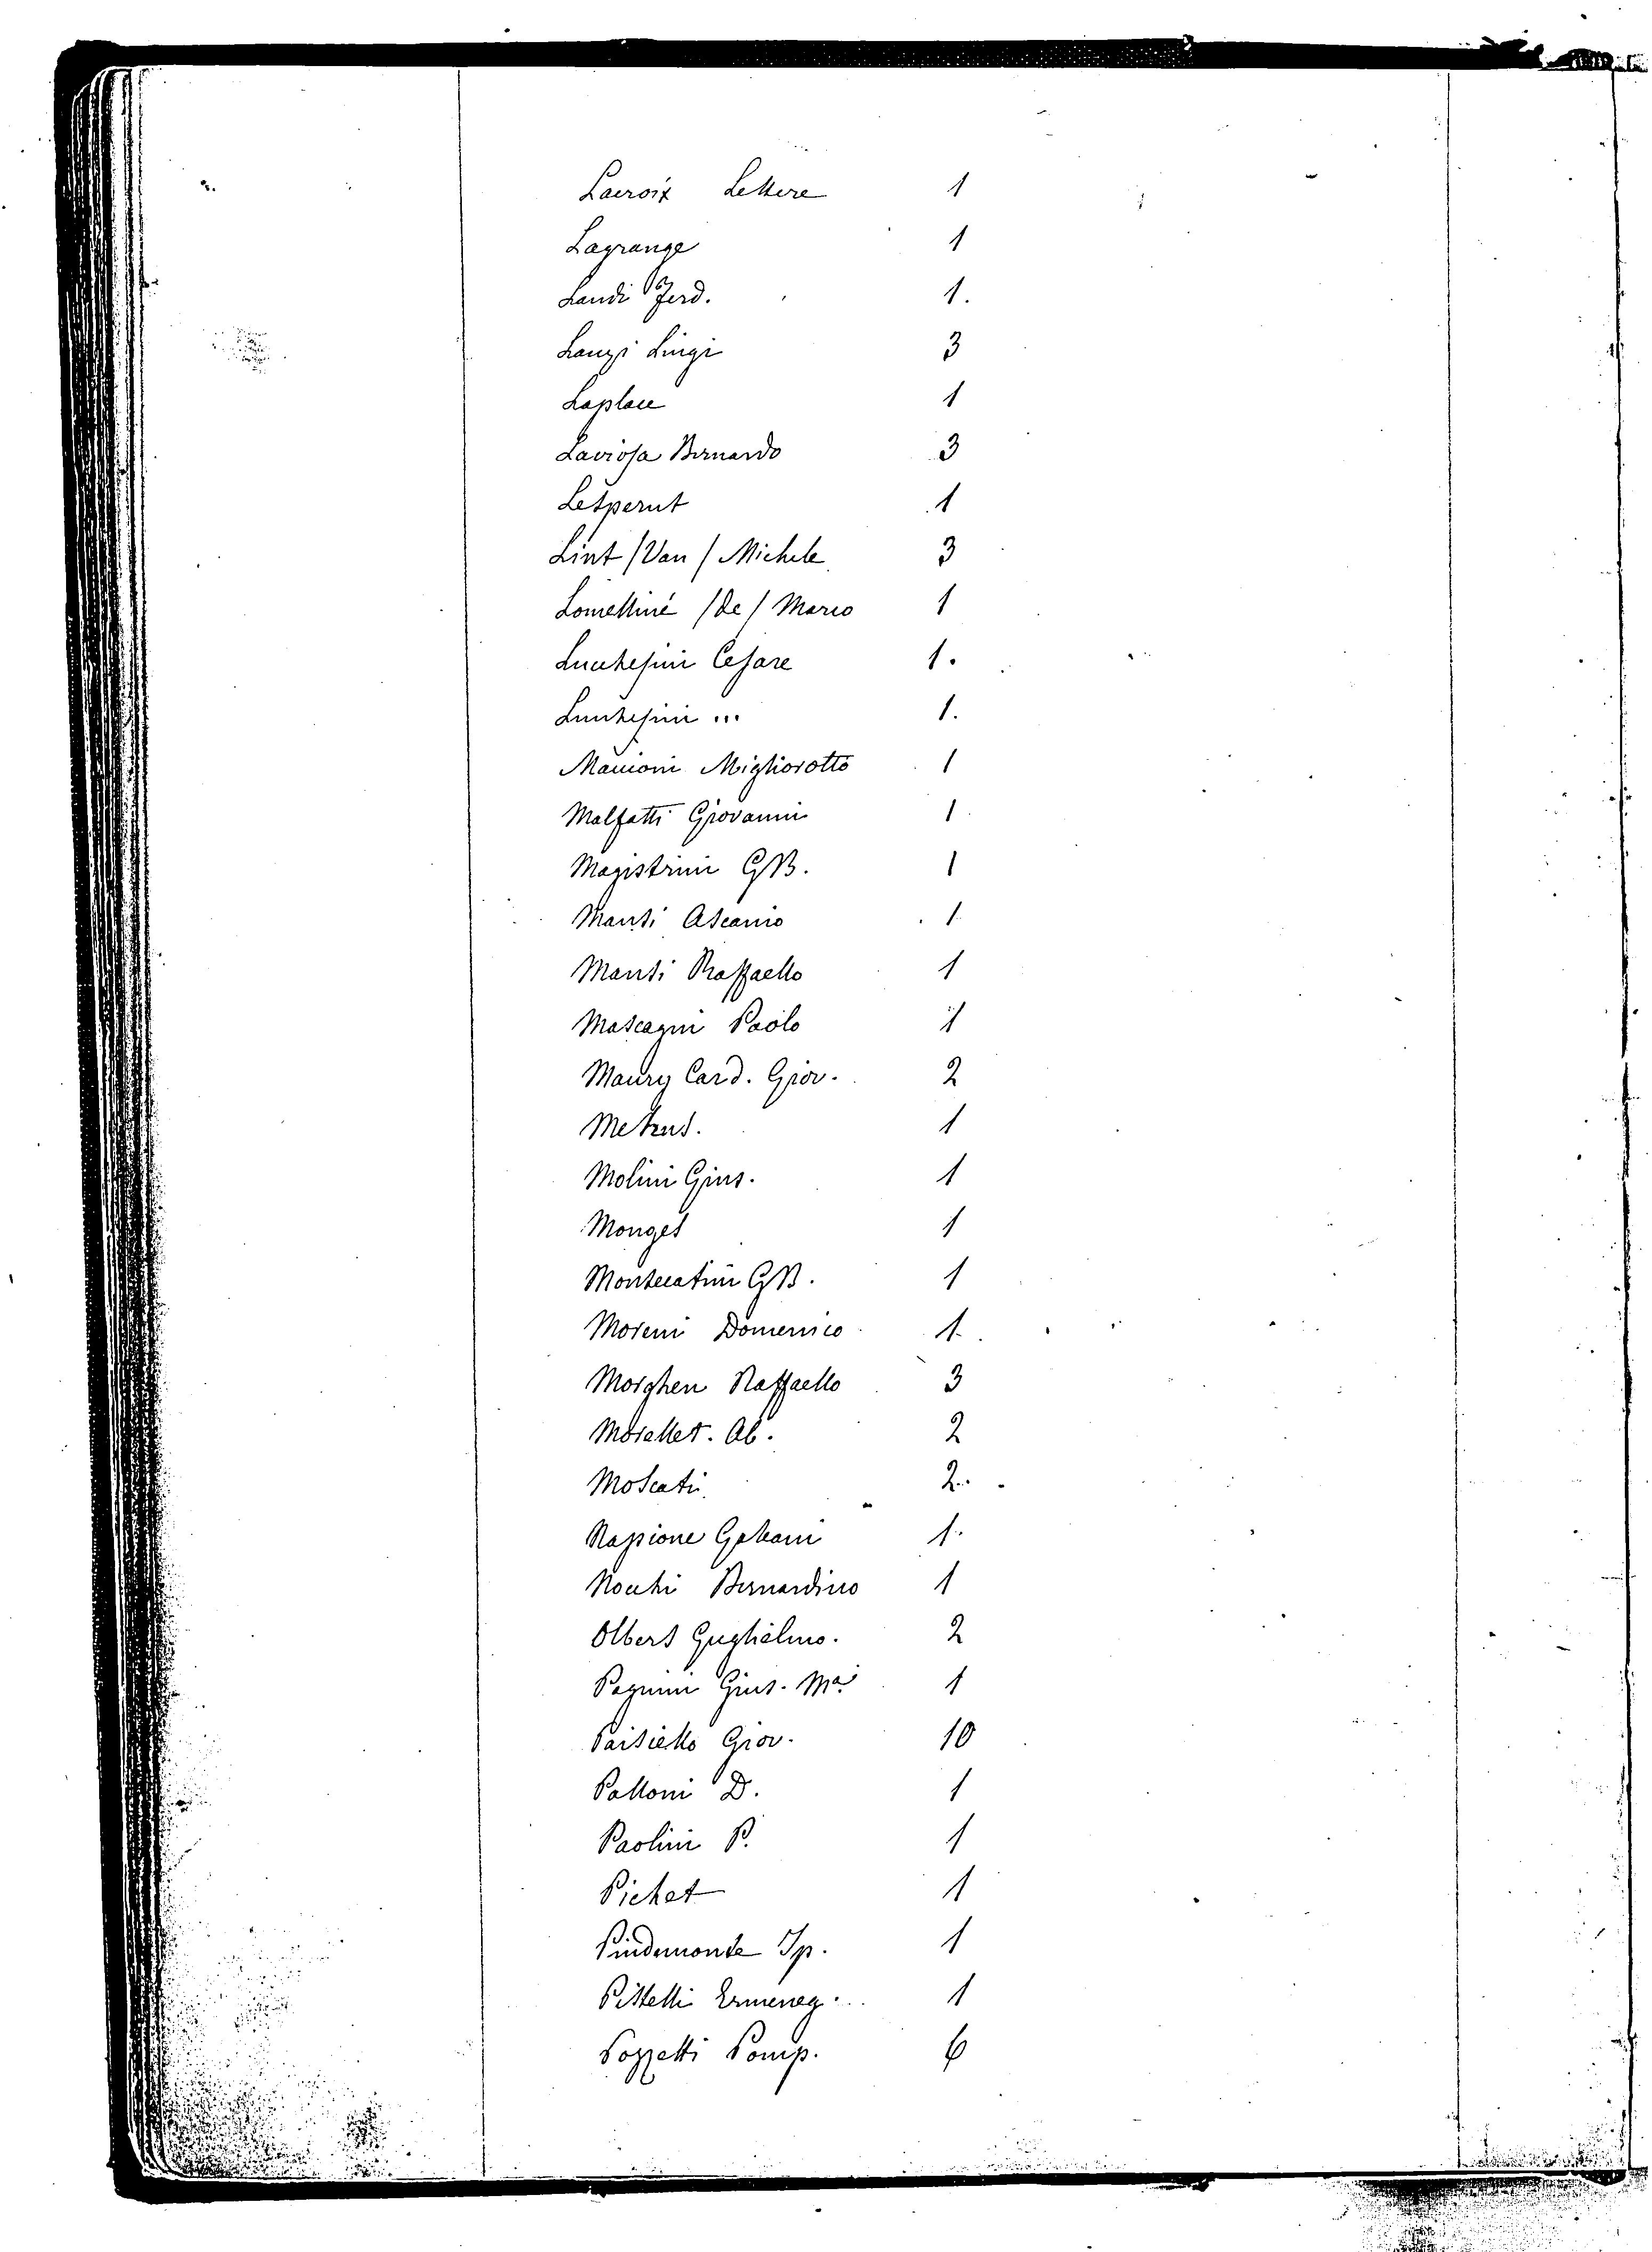 Lacroix Lettere 1
Lagrange 1
Landi Ferd. 1.
Lanzi Luigi 3
Laplace 1
Laviosa Bernardo 3
Lesperut 1
Lint /Van/ Michele 3
Lomellini /de/ Marco 1
Lucchesini Cesare 1.
Lucchesini ... 1.
Maccioni Migliorotto 1
Malfatti Giovanni 1
Magistrini GB. 1
Mansi Ascanio 1
Mansi Raffaello 1
Mascagni Paolo 1
Maury Card. Giov. 2
Mehus. 1
Molini Gius. 1
Monges 1
Montecatini GB. 1
Moreni Domenico 1.
Morghen Raffaello 3
Morellet. Ab. 2
Moscati 2.
Napione Galeani 1.
Nocchi Bernardino 1
Olbers Guglielmo. 2
Pagnini Gius. Mª 1
Paisiello Giov. 10
Palloni D. 1
Paolini P. 1
Pichet 1
Pindemonte Ip. 1
Pistelli Ermeneg. .. 1
Pozzetti Pomp. 6